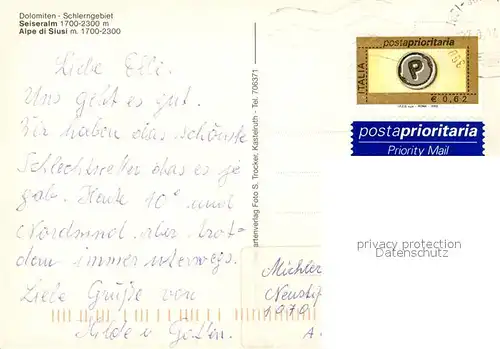 Dolomiten - Schlerngebiet
Seiseralm 1700-2300 m
Alpe di Siusi m. 1700-2300
Liebe Elli.
Uns geht es gut.
Wir haben das schönste
Schlechtwetter das es je
gab. Heute 10° und
Nordwind aber trotz-
dem immer unterwegs.
Liebe Grüße von
Hilde u
artenverlag Foto S. Trocker, Kastelruth - Tel. 706371
postaprioritaria
ITALIA
P
€ 0,62
postaprioritaria
Priority Mail
privacy protection
Datenschutz
Michler
Neustif
1070
A